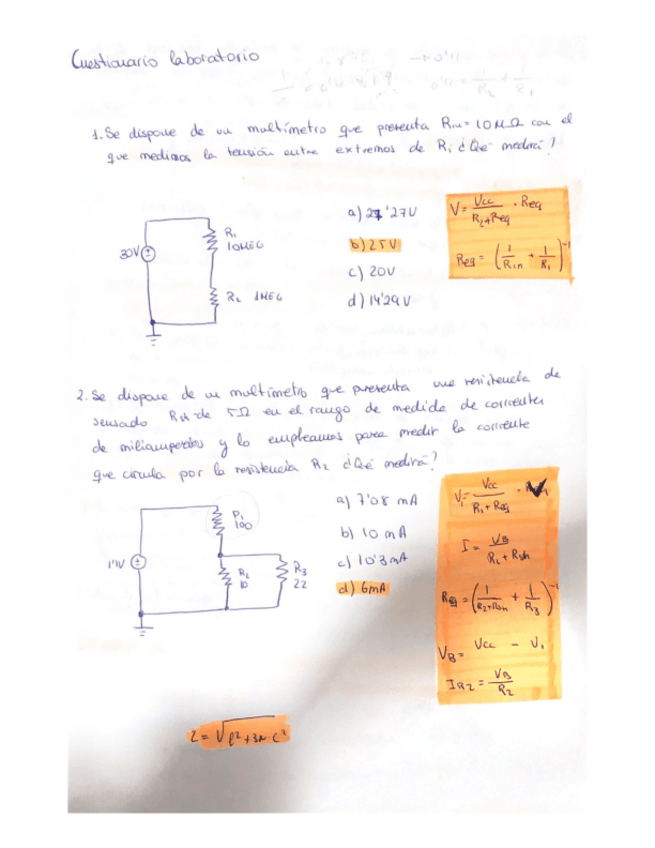 Cuestionario laboratorio
1. Se dispone de un multímetro que presenta Rin = 10MΩ con el
que medimos la tensión entre extremos de R1 ¿Qué medirá?
30V
R1
10MEG
R2 1MEG
a) 27'27V
b) 25V
c) 20V
d) 14'29V
V = Vcc / (R2+Req) · Req
Req = (1/Rin + 1/R1)^-1
2. Se dispone de un multímetro que presenta una resistencia de
sensado Rsh de 5Ω en el rango de medida de corrientes
de miliamperios y lo empleamos para medir la corriente
que circula por la resistencia R2 ¿Qué medirá?
1'1V
R1
100
R2
10
R3
22
a) 7'08 mA
b) 10 mA
c) 10'3 mA
d) 6mA
V1 = Vcc / (R1 + Req) ·
I = VB / (R2 + Rsh)
Req = (1/ + 1/R3)^-1
VB = Vcc - V1
IR2 = VB / R2